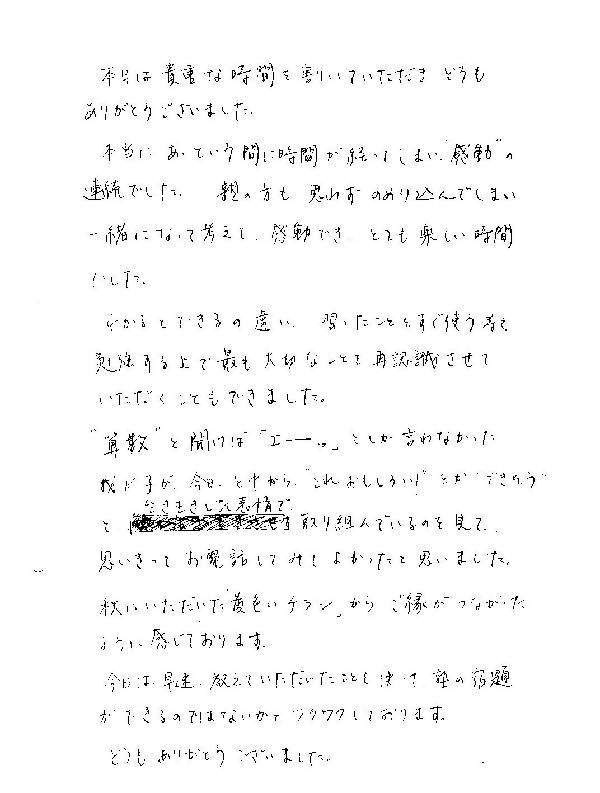 本日は貴重な時間を割いていただき どうも
ありがとうございました。
本当に あっという間に時間が経ってしまい"感動"の
連続でした。 親の方も 思わず のめり込んでしまい
一緒になって考えて、感動でき、とても楽しい時間
でした。
わかるとできるの違い、習ったことをすぐ使う
勉強する上で最も大切なことを再認識させて
いただくこともできました。
"算数"と聞けば「エーーっ。」としか言わなかった
我が子が、今日、と中から、"これおもしろい!"とか"できたっ"
と 生き生きした表情で 取り組んでいるのを見て、
思いきって お電話してみて よかったと思いました。
秋にいただいた「黄色いチラシ」から ご縁がつながった
ように感じております。
今日は 早速、教えていただいたことを使って、塾の宿題
ができるのではないかと ワクワクしております。
どうも ありがとう ございました。